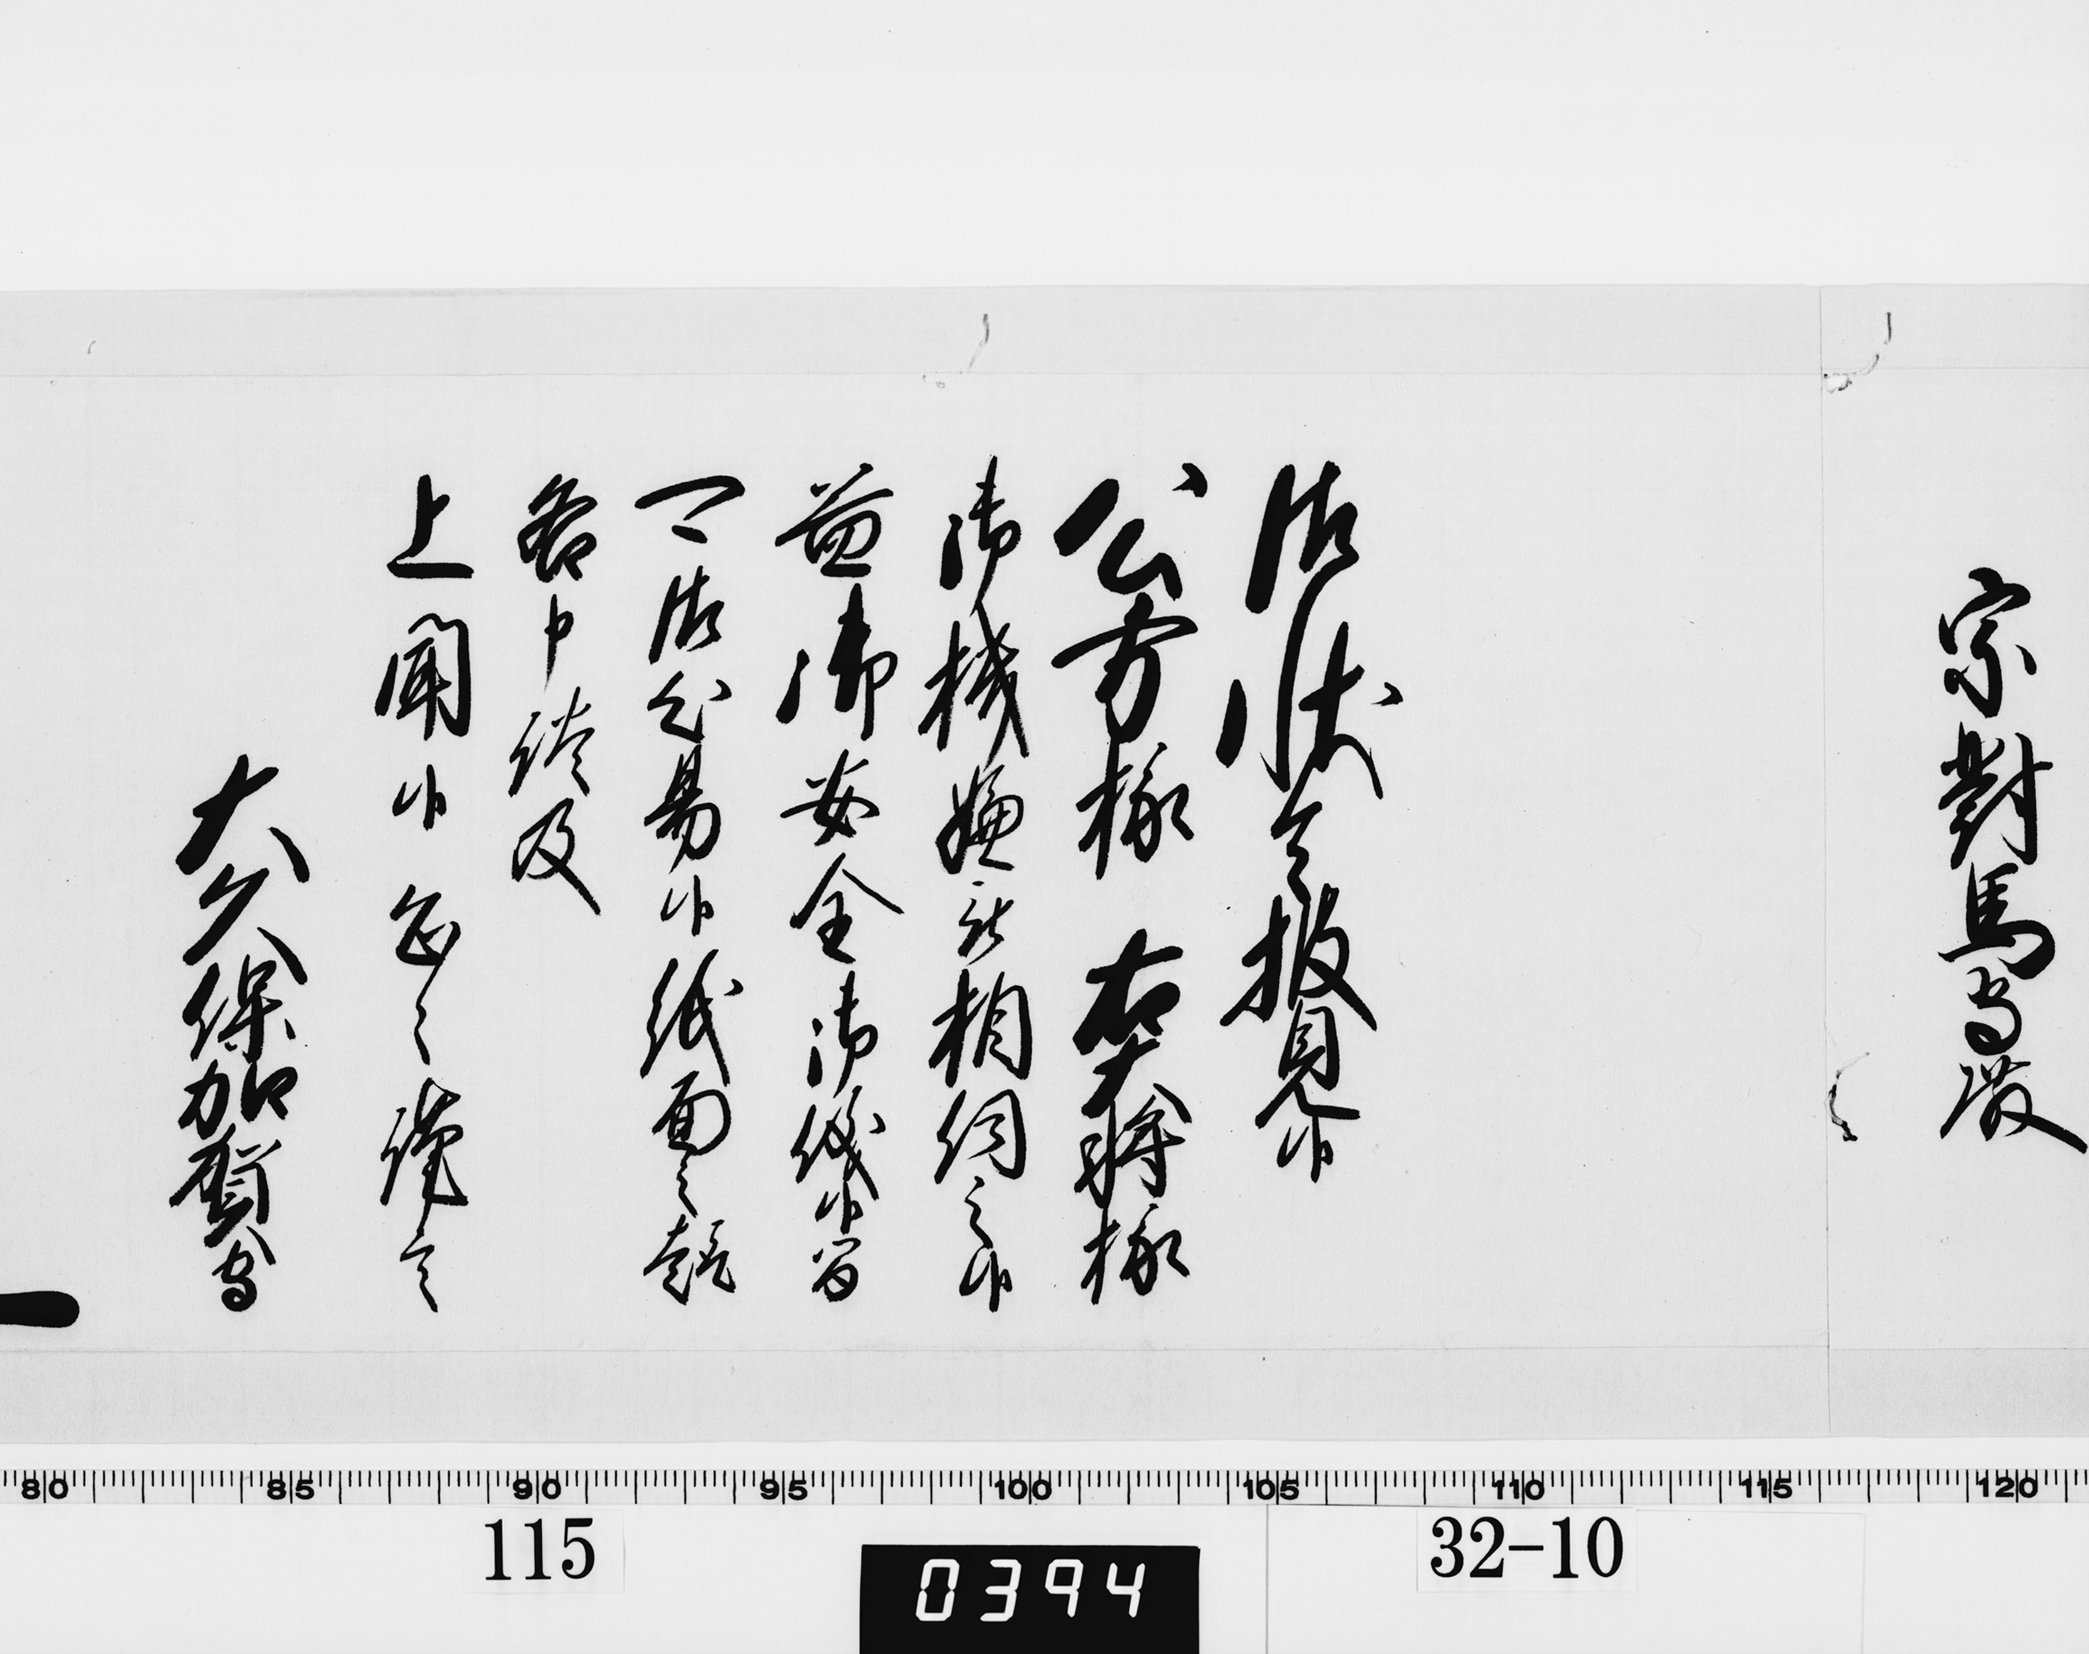 宗對馬守殿
御状令披見候
公方様 右大将様
御機嫌被相伺之候
益御安全御儀候間
可御心易候紙面之趣
各申談及
上聞候恐々謹言
大久保加賀守
80 85 90 95 100 105 110 115 120
115
0394
32-10